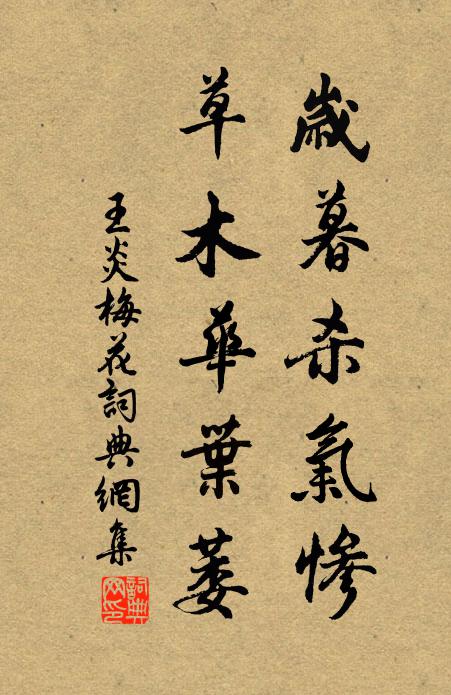 歲暮杀氣慘
草木華葉萎
王炎梅花詞典網集
詞典网印